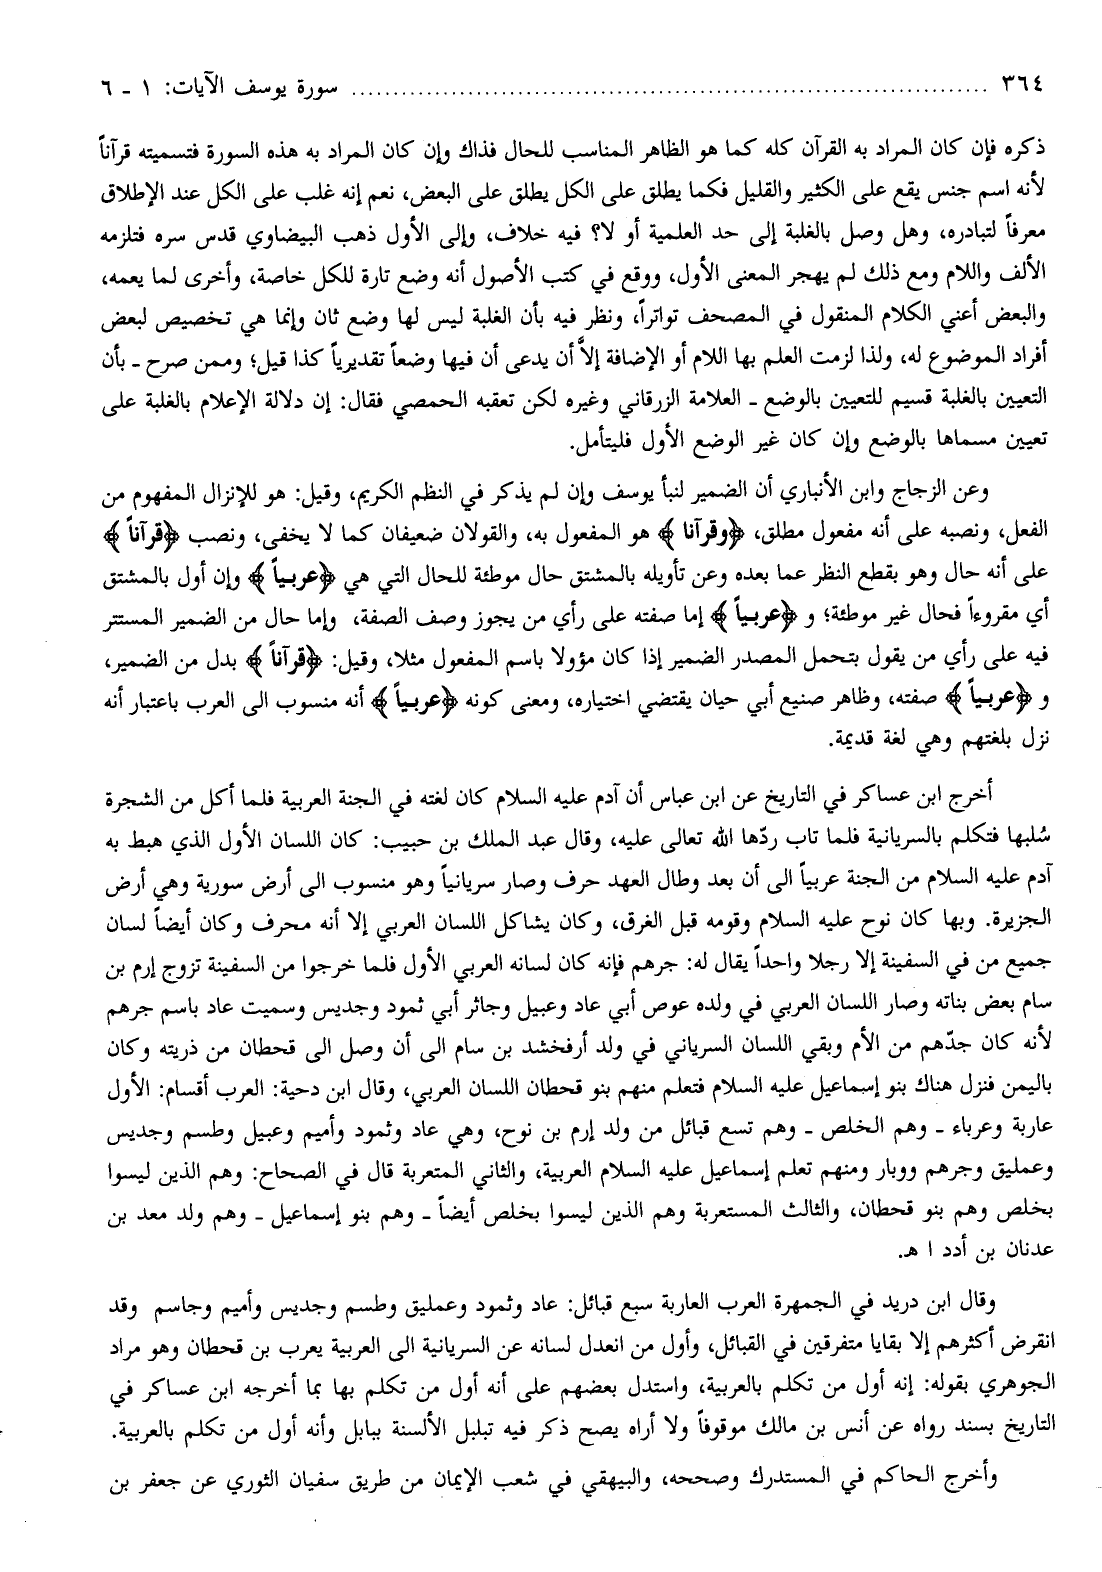 ٣٦٤ ........................................................................... سورة يوسف الآيات: ١ ـ ٦
ذكره فإن كان المراد به القرآن كله كما هو الظاهر المناسب للحال فذاك وإن كان المراد به هذه السورة فتسميته قرآناً
لأنه اسم جنس يقع على الكثير والقليل فكما يطلق على الكل يطلق على البعض، نعم إنه غلب على الكل عند الإطلاق
معرفاً لتبادره، وهل وصل بالغلبة إلى حد العلمية أو لا؟ فيه خلاف، وإلى الأول ذهب البيضاوي قدس سره فتلزمه
الألف واللام ومع ذلك لم يهجر المعنى الأول، ووقع في كتب الأصول أنه وضع تارة للكل خاصة، وأخرى لما يعمه،
والبعض أعني الكلام المنقول في المصحف تواتراً، ونظر فيه بأن الغلبة ليس لها وضع ثان وإنما هي تخصيص لبعض
أفراد الموضوع له، ولذا لزمت العلم بها اللام أو الإضافة إلاَّ أن يدعى أن فيها وضعاً تقديرياً كذا قيل؛ وممن صرح ـ بأن
التعيين بالغلبة قسيم للتعيين بالوضع ـ العلامة الزرقاني وغيره لكن تعقبه الحمصي فقال: إن دلالة الإعلام بالغلبة على
تعيين مسماها بالوضع وإن كان غير الوضع الأول فليتأمل.
وعن الزجاج وابن الأنباري أن الضمير لنبأ يوسف وإن لم يذكر في النظم الكريم، وقيل: هو للإنزال المفهوم من
الفعل، ونصبه على أنه مفعول مطلق، ﴿وقرآنا﴾ هو المفعول به، والقولان ضعيفان كما لا يخفى، ونصب ﴿قرآناً﴾
على أنه حال وهو بقطع النظر عما بعده وعن تأويله بالمشتق حال موطئة للحال التي هي ﴿عربياً﴾ وإن أول بالمشتق
أي مقروءاً فحال غير موطئة؛ و ﴿عربياً﴾ إما صفته على رأي من يجوز وصف الصفة، وإما حال من الضمير المستتر
فيه على رأي من يقول بتحمل المصدر الضمير إذا كان مؤولا باسم المفعول مثلا، وقيل: ﴿قرآناً﴾ بدل من الضمير،
و ﴿عربياً﴾ صفته، وظاهر صنيع أبي حيان يقتضي اختياره، ومعنى كونه ﴿عربياً﴾ أنه منسوب الى العرب باعتبار أنه
نزل بلغتهم وهي لغة قديمة.
أخرج ابن عساكر في التاريخ عن ابن عباس أن آدم عليه السلام كان لغته في الجنة العربية فلما أكل من الشجرة
سُلبها فتكلم بالسريانية فلما تاب ردّها الله تعالى عليه، وقال عبد الملك بن حبيب: كان اللسان الأول الذي هبط به
آدم عليه السلام من الجنة عربياً الى أن بعد وطال العهد حرف وصار سريانياً وهو منسوب الى أرض سورية وهي أرض
الجزيرة. وبها كان نوح عليه السلام وقومه قبل الغرق، وكان يشاكل اللسان العربي إلا أنه محرف وكان أيضاً لسان
جميع من في السفينة إلا رجلا واحداً يقال له: جرهم فإنه كان لسانه العربي الأول فلما خرجوا من السفينة تزوج إرم بن
سام بعض بناته وصار اللسان العربي في ولده عوص أبي عاد وعبيل وجاثر أبي ثمود وجديس وسميت عاد باسم جرهم
لأنه كان جدّهم من الأم وبقي اللسان السرياني في ولد أرفخشد بن سام الى أن وصل الى قحطان من ذريته وكان
باليمن فنزل هناك بنو إسماعيل عليه السلام فتعلم منهم بنو قحطان اللسان العربي، وقال ابن دحية: العرب أقسام: الأول
عاربة وعرباء ـ وهم الخلص ـ وهم تسع قبائل من ولد إرم بن نوح، وهي عاد وثمود وأميم وعبيل وطسم وجديس
وعمليق وجرهم ووبار ومنهم تعلم إسماعيل عليه السلام العربية، والثاني المتعربة قال في الصحاح: وهم الذين ليسوا
بخلص وهم بنو قحطان، والثالث المستعربة وهم الذين ليسوا بخلص أيضاً ـ وهم بنو إسماعيل ـ وهم ولد معد بن
عدنان بن أدد ا هـ.
وقال ابن دريد في الجمهرة العرب العاربة سبع قبائل: عاد وثمود وعمليق وطسم وجديس وأميم وجاسم وقد
انقرض أكثرهم إلا بقايا متفرقين في القبائل، وأول من انعدل لسانه عن السريانية الى العربية يعرب بن قحطان وهو مراد
الجوهري بقوله: إنه أول من تكلم بالعربية، واستدل بعضهم على أنه أول من تكلم بها بما أخرجه ابن عساكر في
التاريخ بسند رواه عن أنس بن مالك موقوفاً ولا أراه يصح ذكر فيه تبلبل الألسنة ببابل وأنه أول من تكلم بالعربية.
وأخرج الحاكم في المستدرك وصححه، والبيهقي في شعب الإيمان من طريق سفيان الثوري عن جعفر بن